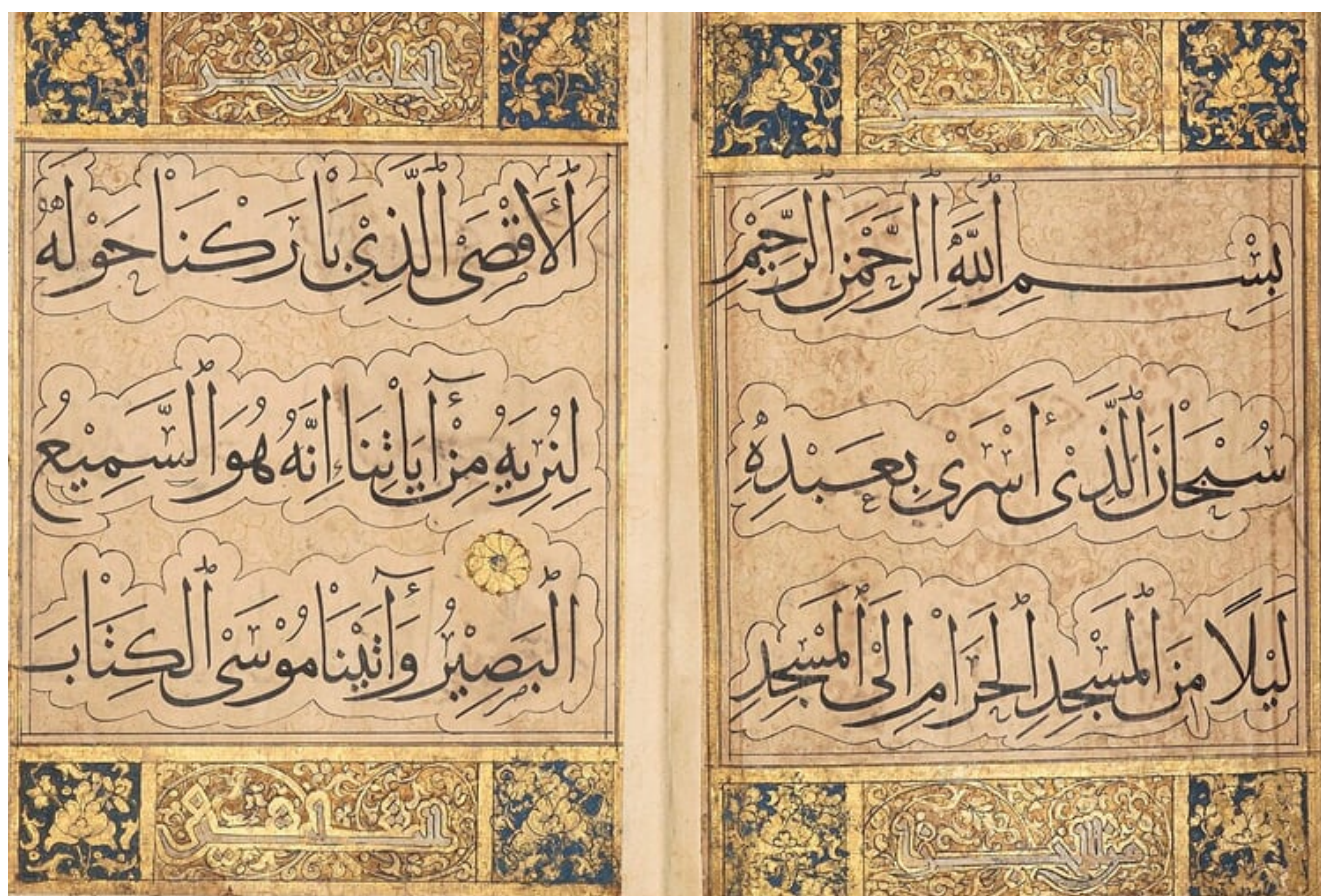 الجز
بِسْمِ ٱللَّهِ ٱلرَّحْمَنِ ٱلرَّحِيْمِ
سُبْحَانَ ٱلَّذِىْ أَسْرَىْ بِعَبْدِهِ
لَيْلًا مِنَ ٱلْمَسْجِدِ ٱلْحَرَاْمِ اِلَى ٱلْمَسْجِدِ
الخامس عشر
ٱلْأَقْصَى ٱلَّذِىْ بَاْرَكْنَاْ حَوْلَهُ
لِنُرِيَهُ مِنْ أٓيَاْتِنَا اِنَّهُ هُوَ ٱلسَّمِيْعُ
ٱلْبَصِيْرُ وَأٓتَيْنَاْ مُوْسَىْ ٱلْكِتَاْبَ